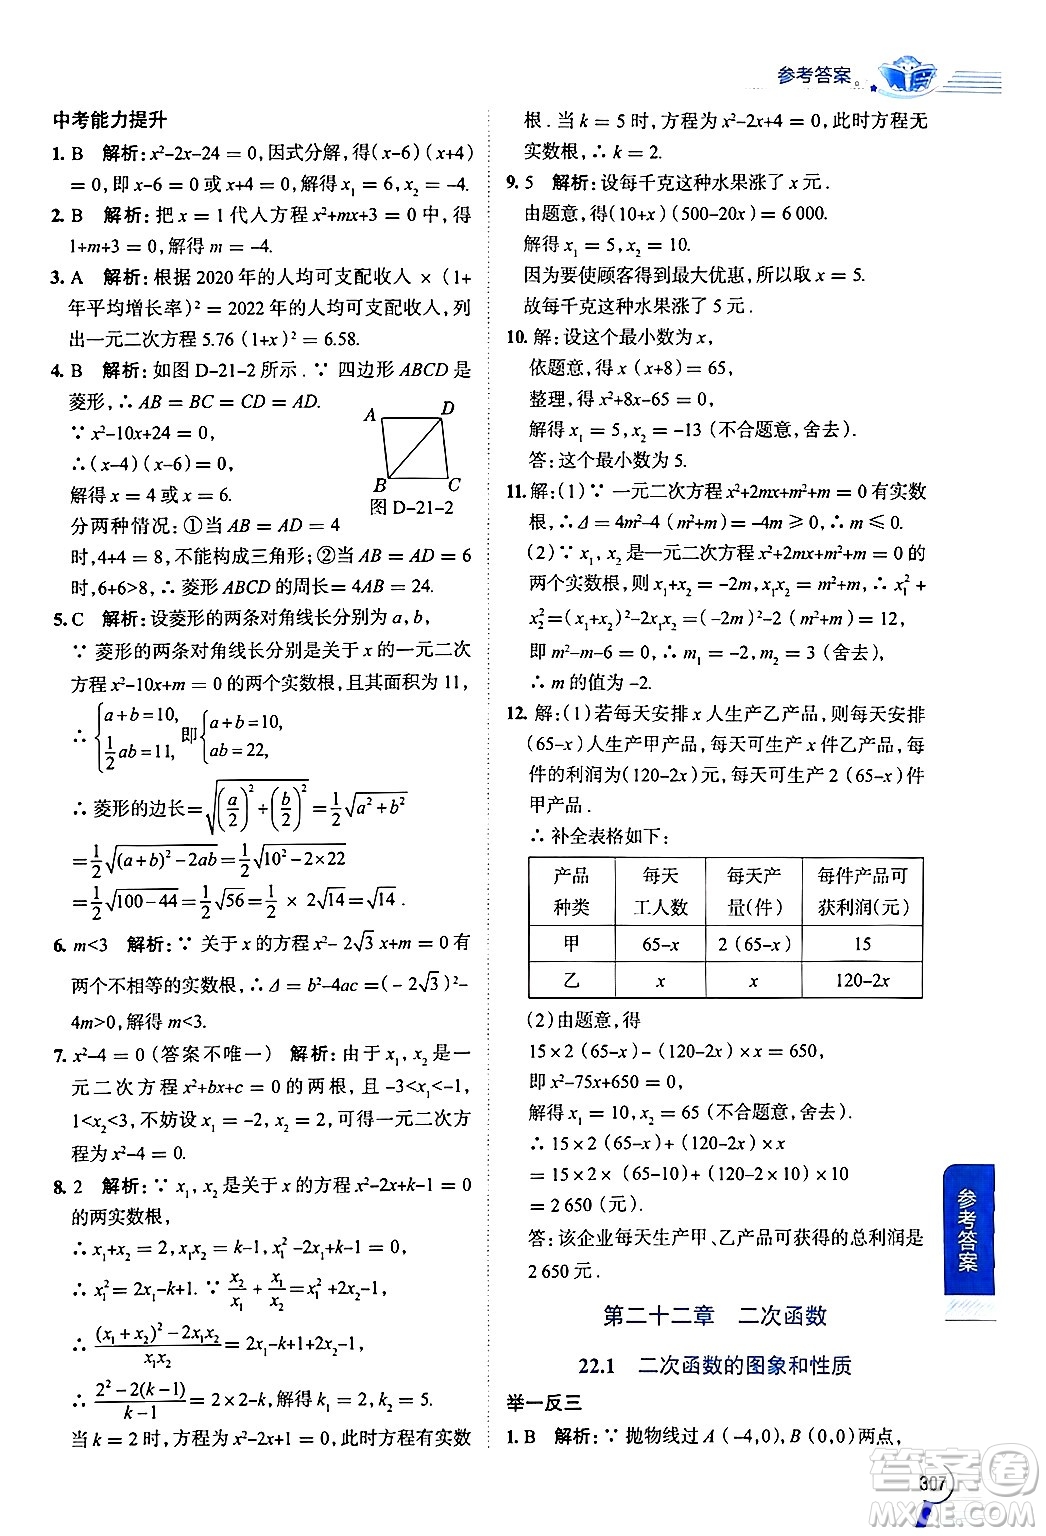 参考答案
中考能力提升
1. B 解析: x²-2x-24 = 0, 因式分解, 得(x-6)(x+4)
= 0, 即 x-6 = 0 或 x+4 = 0, 解得 x₁ = 6, x₂ = -4.
2. B 解析: 把 x = 1 代人方程 x²+mx+3 = 0 中, 得
1+m+3 = 0, 解得 m = -4.
3. A 解析: 根据 2020 年的人均可支配收人 × (1+
年平均增长率)² = 2022 年的人均可支配收人, 列
出一元二次方程 5.76 (1+x)² = 6.58.
4. B 解析: 如图 D-21-2 所示. ∵ 四边形 ABCD 是
菱形, ∴ AB = BC = CD = AD.
∵ x²-10x+24 = 0,
∴ (x-4)(x-6) = 0,
解得 x = 4 或 x = 6.
A D
B C
图 D-21-2
分两种情况: ①当 AB = AD = 4
时, 4+4 = 8, 不能构成三角形; ②当 AB = AD = 6
时, 6+6>8, ∴ 菱形 ABCD 的周长 = 4AB = 24.
5. C 解析: 设菱形的两条对角线长分别为 a, b,
∵ 菱形的两条对角线长分别是关于 x 的一元二次
方程 x²-10x+m = 0 的两个实数根, 且其面积为 11,
∴ {a+b=10, ½ab=11, 即 {a+b=10, ab=22,
∴ 菱形的边长 = √((a/2)²+(b/2)²) = ½√(a²+b²)
= ½√((a+b)²-2ab) = ½√(10²-2×22)
= ½√(100-44) = ½√56 = ½ × 2√14 = √14 .
6. m<3 解析: ∵ 关于 x 的方程 x²-2√3 x+m = 0 有
两个不相等的实数根, ∴ Δ = b²-4ac = (-2√3)²-
4m>0, 解得 m<3.
7. x²-4 = 0 (答案不唯一) 解析: 由于 x₁, x₂ 是一
元二次方程 x²+bx+c = 0 的两根, 且 -3<x₁<-1,
1<x₂<3, 不妨设 x₁ = -2, x₂ = 2, 可得一元二次方
程为 x²-4 = 0.
8. 2 解析: ∵ x₁, x₂ 是关于 x 的方程 x²-2x+k-1 = 0
的两实数根,
∴ x₁+x₂ = 2, x₁x₂ = k-1, x₁²-2x₁+k-1 = 0,
∴ x₁² = 2x₁-k+1. ∵ x₂/x₁ + x₁/x₂ = x₁²+2x₂-1,
∴ ((x₁+x₂)²-2x₁x₂)/(x₁x₂) = 2x₁-k+1+2x₂-1,
∴ (2²-2(k-1))/(k-1) = 4-k, 解得 k₁ = 2, k₂ = 5.
当 k = 2 时, 方程为 x²-2x+1 = 0, 方程有实数
根. 当 k = 5 时, 方程为 x²-2x+4 = 0, 此时方程无
实数根, ∴ k = 2.
9. 5 解析: 设每千克这种水果涨了 x 元.
由题意, 得(10+x)(500-20x) = 6 000.
解得 x₁ = 5, x₂ = 10.
因为要使顾客得到最大优惠, 所以 x = 5.
故每千克这种水果涨了 5 元.
10. 解: 设这个最小数为 x,
依题意, 得 x (x+8) = 65,
整理, 得 x²+8x-65 = 0,
解得 x₁ = 5, x₂ = -13 (不合题意, 舍去).
答: 这个最小数为 5.
11. 解: (1) ∵ 一元二次方程 x²+2mx+m²+m = 0 有实数
根, ∴ Δ = 4m²-4 (m²+m) = -4m ≥ 0, ∴ m ≤ 0.
(2) ∵ x₁, x₂ 是一元二次方程 x²+2mx+m²+m = 0 的
两个实数根, 则 x₁+x₂ = -2m, x₁x₂ = m²+m, ∴ x₁² +
x₂² = (x₁+x₂)²-2x₁x₂ = (-2m)²-2 (m²+m) = 12,
即 m²-m-6 = 0, ∴ m₁ = -2, m₂ = 3 (舍去),
∴ m 的值为 -2.
12. 解: (1) 若每天安排 x 人生产乙产品, 则每天安排
(65-x) 人生产甲产品, 每天可生产 x 件乙产品, 每
件的利润为(120-2x)元, 每天可生产 2 (65-x) 件
甲产品.
∴ 补全表格如下:
产品种类 每天工人数 每天产量(件) 每件产品可获利润(元)
甲 65-x 2 (65-x) 15
乙 x x 120-2x
(2) 由题意, 得
15 × 2 (65-x) - x (120-2x) = 650,
即 x²-75x+650 = 0,
解得 x₁ = 10, x₂ = 65 (不合题意, 舍去).
∴ 15 × 2 (65-x) + x (120-2x)
= 15 × 2 (65-10) + (120-2 × 10) × 10
= 2 650 (元).
答: 该企业每天生产甲、乙产品可获得的总利润是
2 650 元.
第二十二章 二次函数
22.1 二次函数的图象和性质
举一反三
1. B 解析: ∵ 抛物线过 A (-4,0), B (0,0) 两点,
参考答案
307
答案圈
MXQE.COM